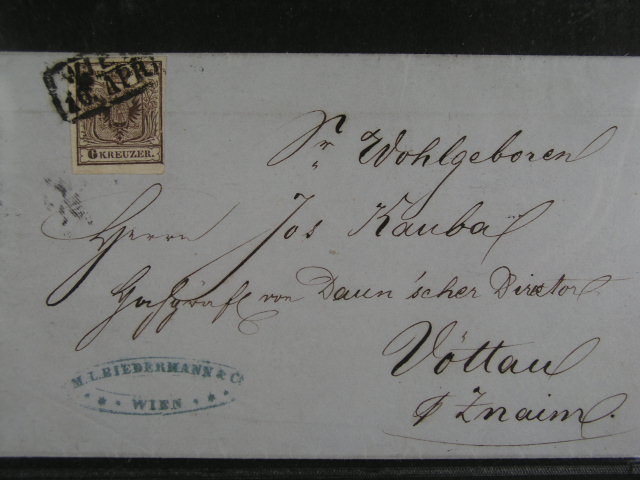 WIEN
16. APRI
6 KREUZER.
Sr Wohlgeboren
Herrn Jos Kauba
Hochgräfl von Daun'scher Director
Vöttau
p Znaim.
M. L. BIEDERMANN & Co
WIEN